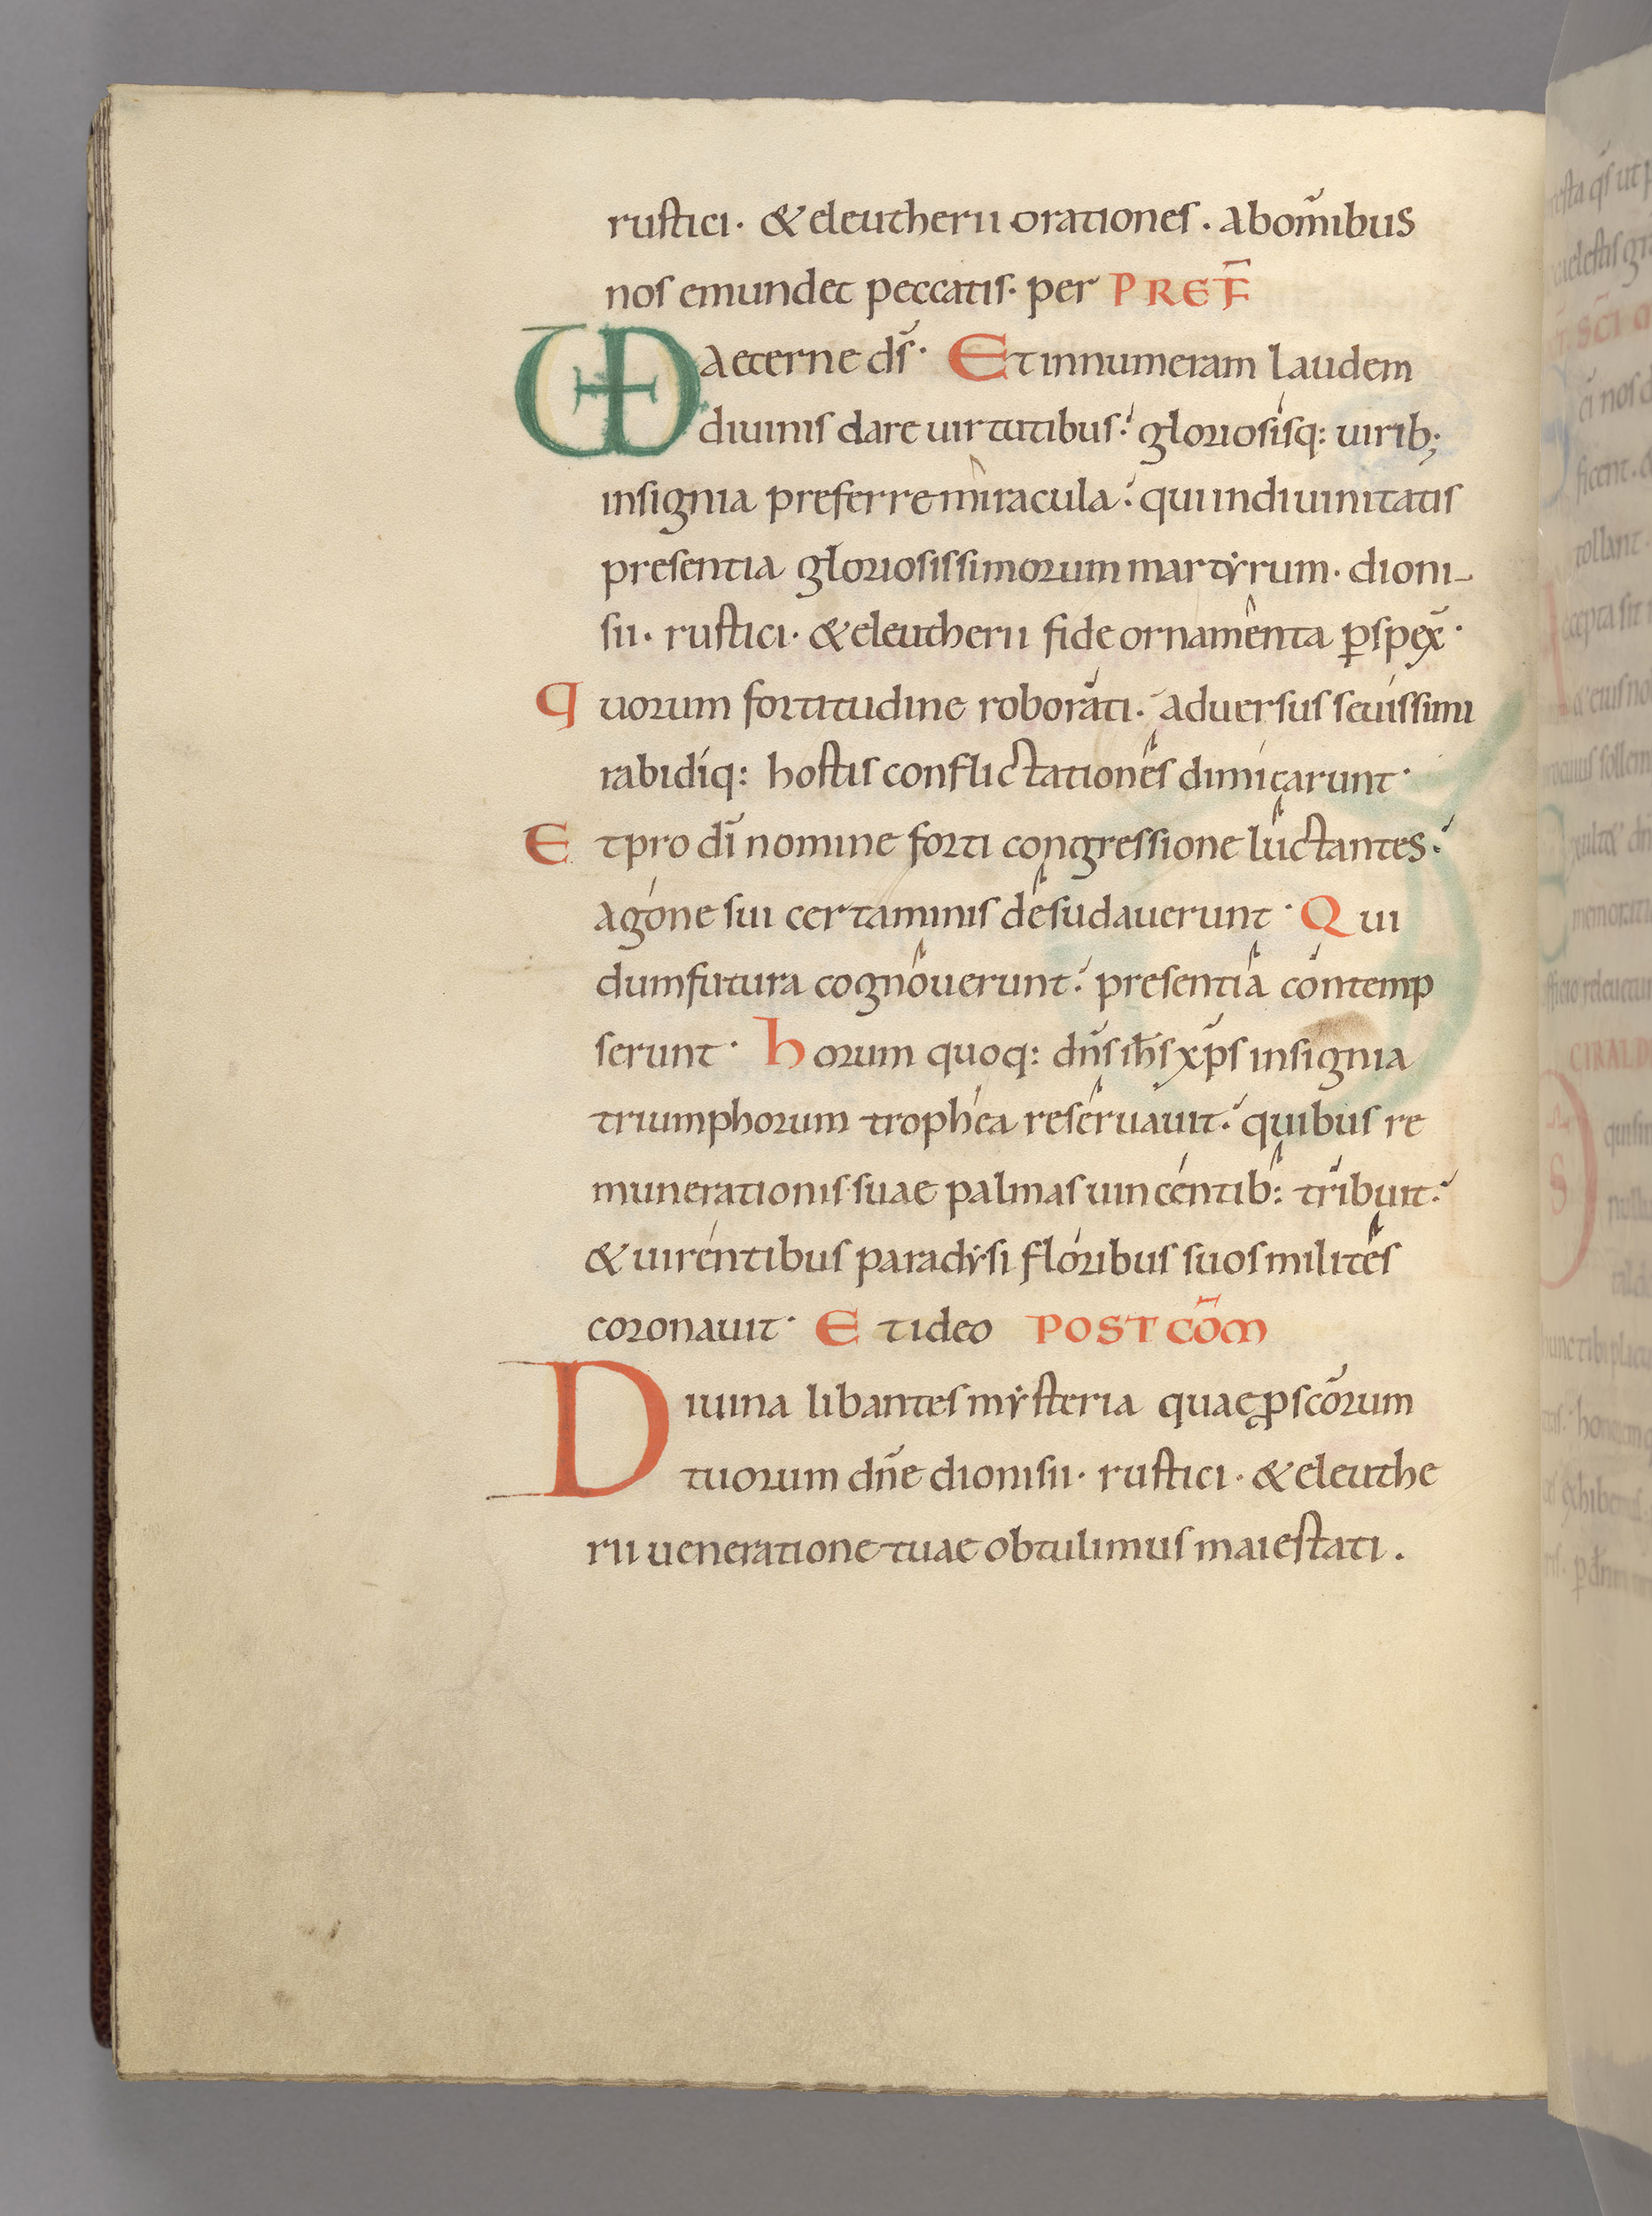 rustici. & eleutherii orationes. ab om̅ibus
nos emundet peccatis. per PREF̅
VD aeterne d̅s. Et innumeram laudem
diuinis dare uirtutibus. gloriosisq: uirib;
insignia preferre miracula. qui in diuinitatis
presentia gloriosissimorum martẏrum. dioni-
sii. rustici. & eleutherii fide ornamenta ꝑspex̅.
Quorum fortitudine roborati. aduersus seuissimi
rabidiq: hostis conflictationes dimicarunt.
Et pro d̅i nomine forti congressione luctantes.
agone sui certaminis desudauerunt. Qui
dum futura cognouerunt. presentia contemp
serunt. Horum quoq: dn̅s ih̅s xp̅s insignia
triumphorum trophea reseruauit. quibus re
munerationis suae palmas uincentib: tribuit.
& uirentibus paradẏsi floribus suos milites
coronauit. Et ideo POST CO̅M
Diuina libantes mẏsteria quae ꝑ sc̅orum
tuorum dn̅e dionisii. rustici. & eleuthe
rii ueneratione tuae obtulimus maiestati.